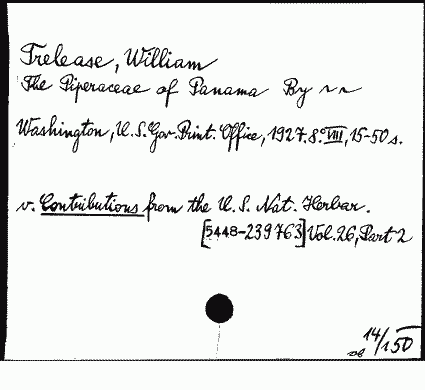 Trelease, William
The Piperaceae of Panama By ~ ~
Washington, U.S. Gov. Print. Office, 1927. 8. VIII, 15-50 s.
v. Contributions from the U.S. Nat. Herbar.
[5448-239763] Vol. 26, Part 2
14/150